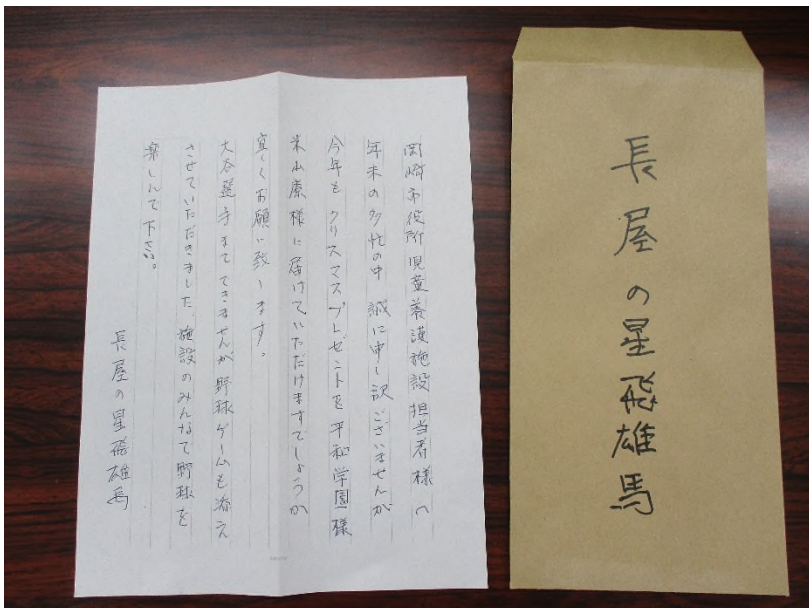 岡崎市役所児童養護施設担当者様へ
年末の多忙の中誠に申し訳ございませんが
今年もクリスマスプレゼントを平和学園様
米山寮様に届けていただけますでしょうか
宜しくお願い致します。
大谷選手まてできませんが野球ゲームも添え
させていただきました。施設のみんなで野球を
楽しんで下さい。
長屋の星飛雄馬
長屋の星飛雄馬